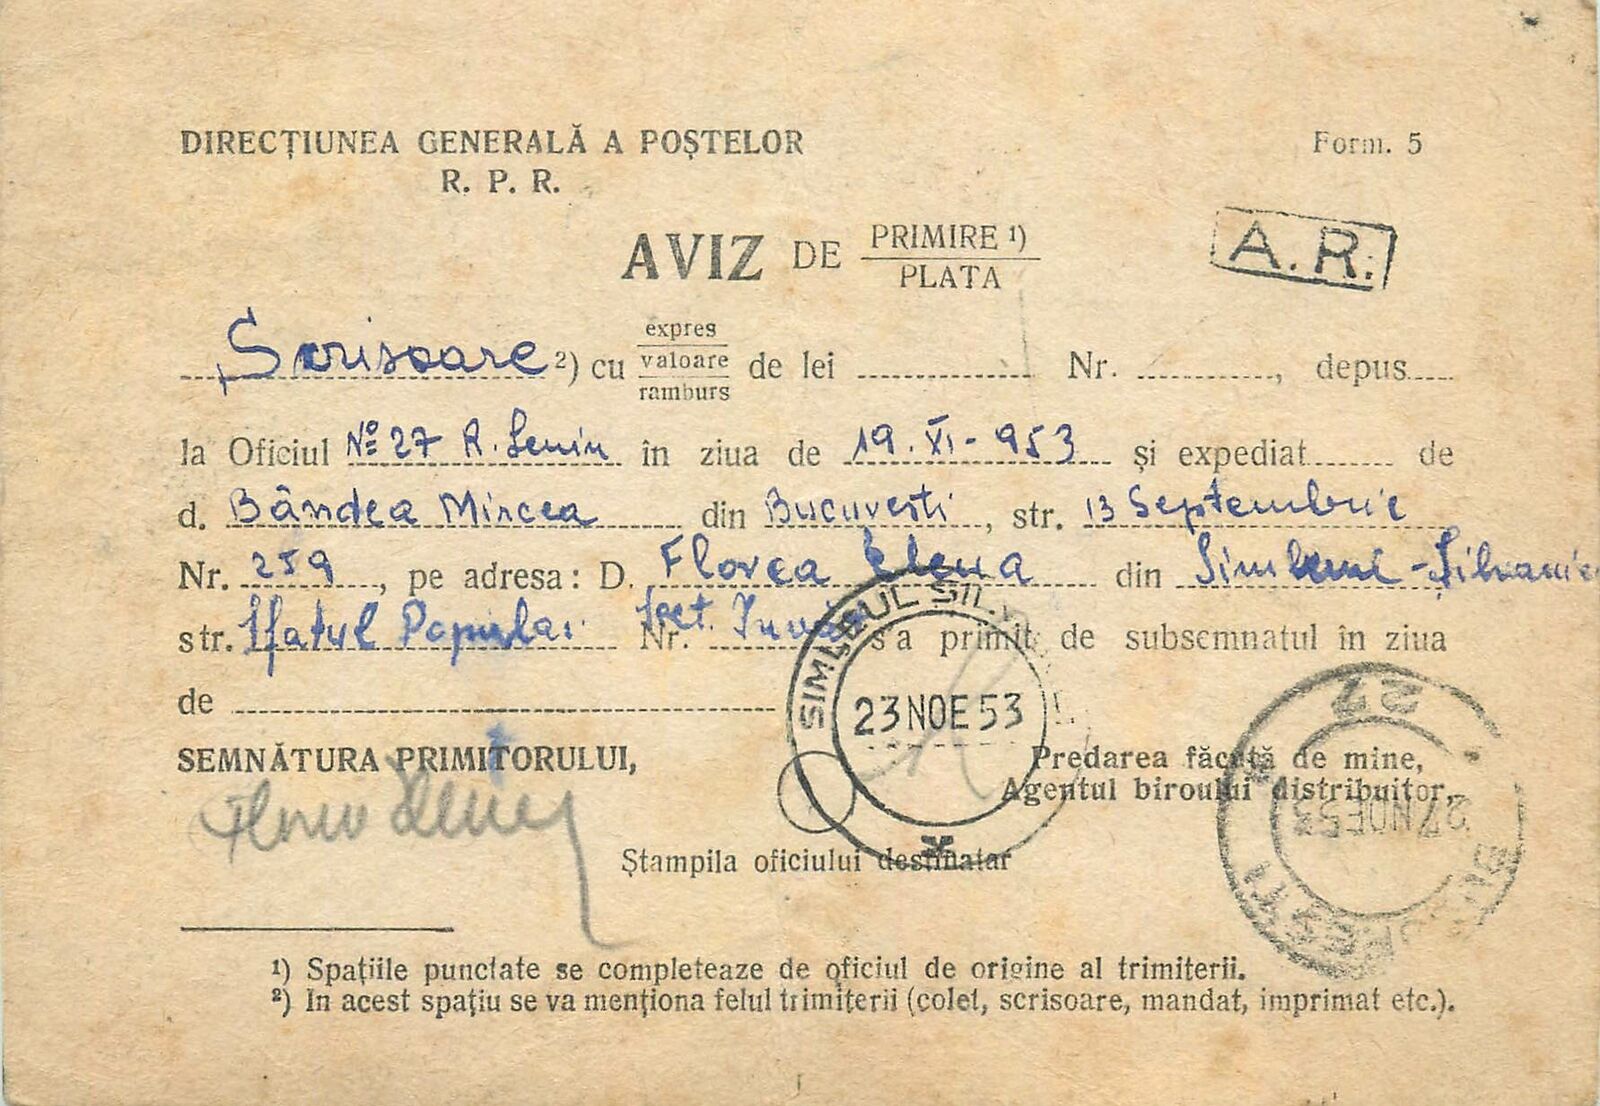 DIRECȚIUNEA GENERALĂ A POȘTELOR
R. P. R.
Form. 5
AVIZ DE PRIMIRE ¹)
PLATA
A.R.
Scrisoare ²) cu expres valoare ramburs de lei Nr. , depus
la Oficiul No 27 R. Lenin în ziua de 19.XI-953 și expediat de
d. Bândea Mircea din București, str. 13 Septembrie
Nr. 259, pe adresa: D. Florea Elena din Simleul-Silvaniei
str. Sfatul Popular Nr. s'a primit de subsemnatul în ziua
de
SIMLEUL SIL.
23 NOE 53
SEMNĂTURA PRIMITORULUI,
Predarea făcută de mine,
Agentul biroului distribuitor,
27
27 NOE 53
BUCUREȘTI
Ștampila oficiului destinatar
¹) Spațiile punctate se completeaze de oficiul de origine al trimiterii.
²) In acest spațiu se va menționa felul trimiterii (colet, scrisoare, mandat, imprimat etc.).